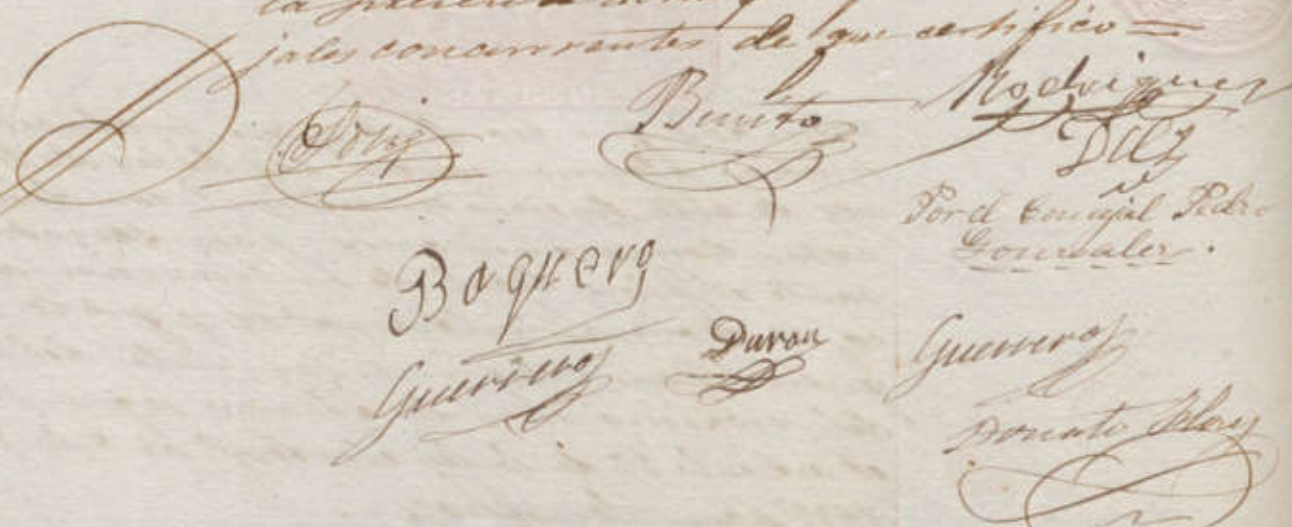 jales concurrentes de que certifico =
Benito
Rodriguez
Diez
Por el Concejal Pedro
Gonzalez.
Baquero
Guerrero
Duran
Guerrero
Donato Blay